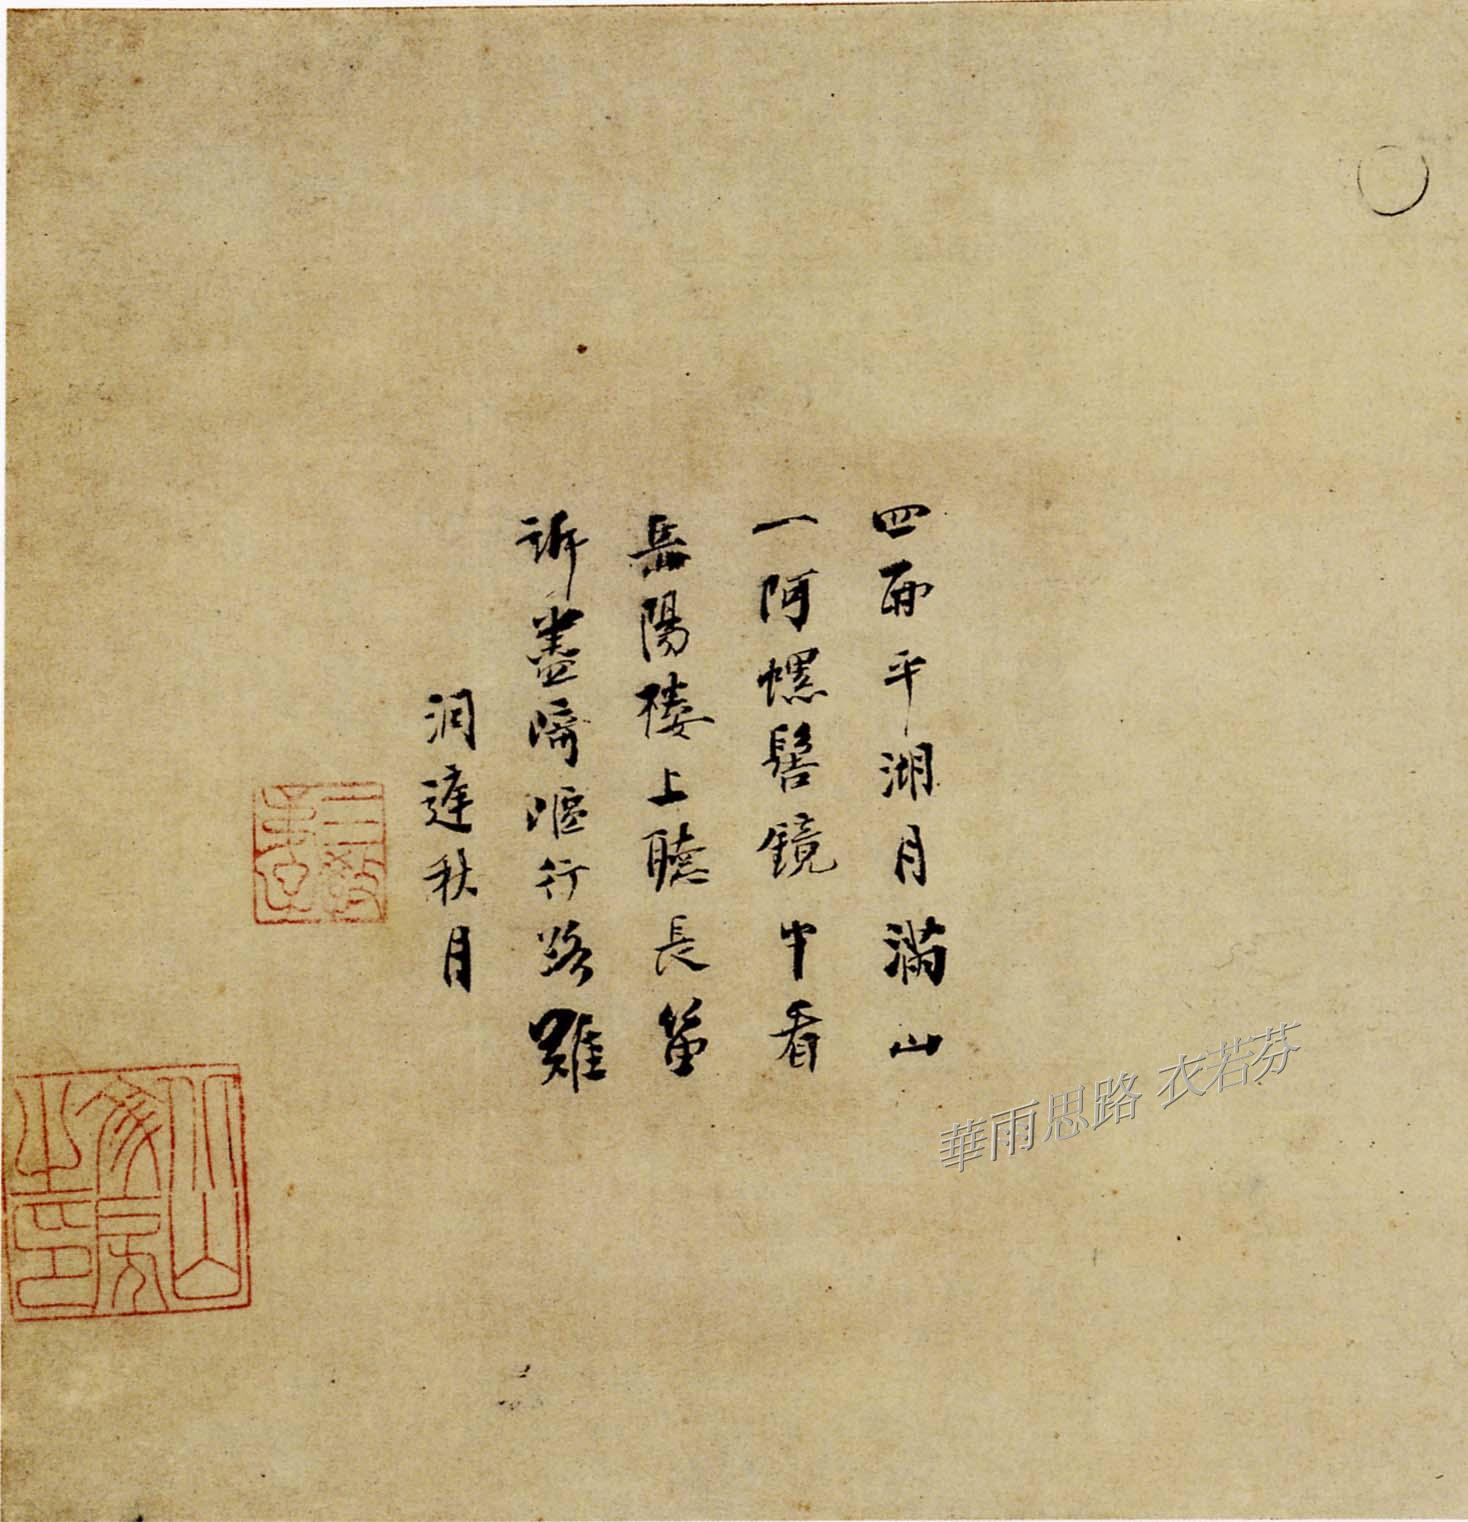 四面平湖月滿山
一阿螺髻鏡中看
岳陽楼上聽長笛
訴盡崎嶇行路難
洞庭秋月
華雨思路 衣若芬